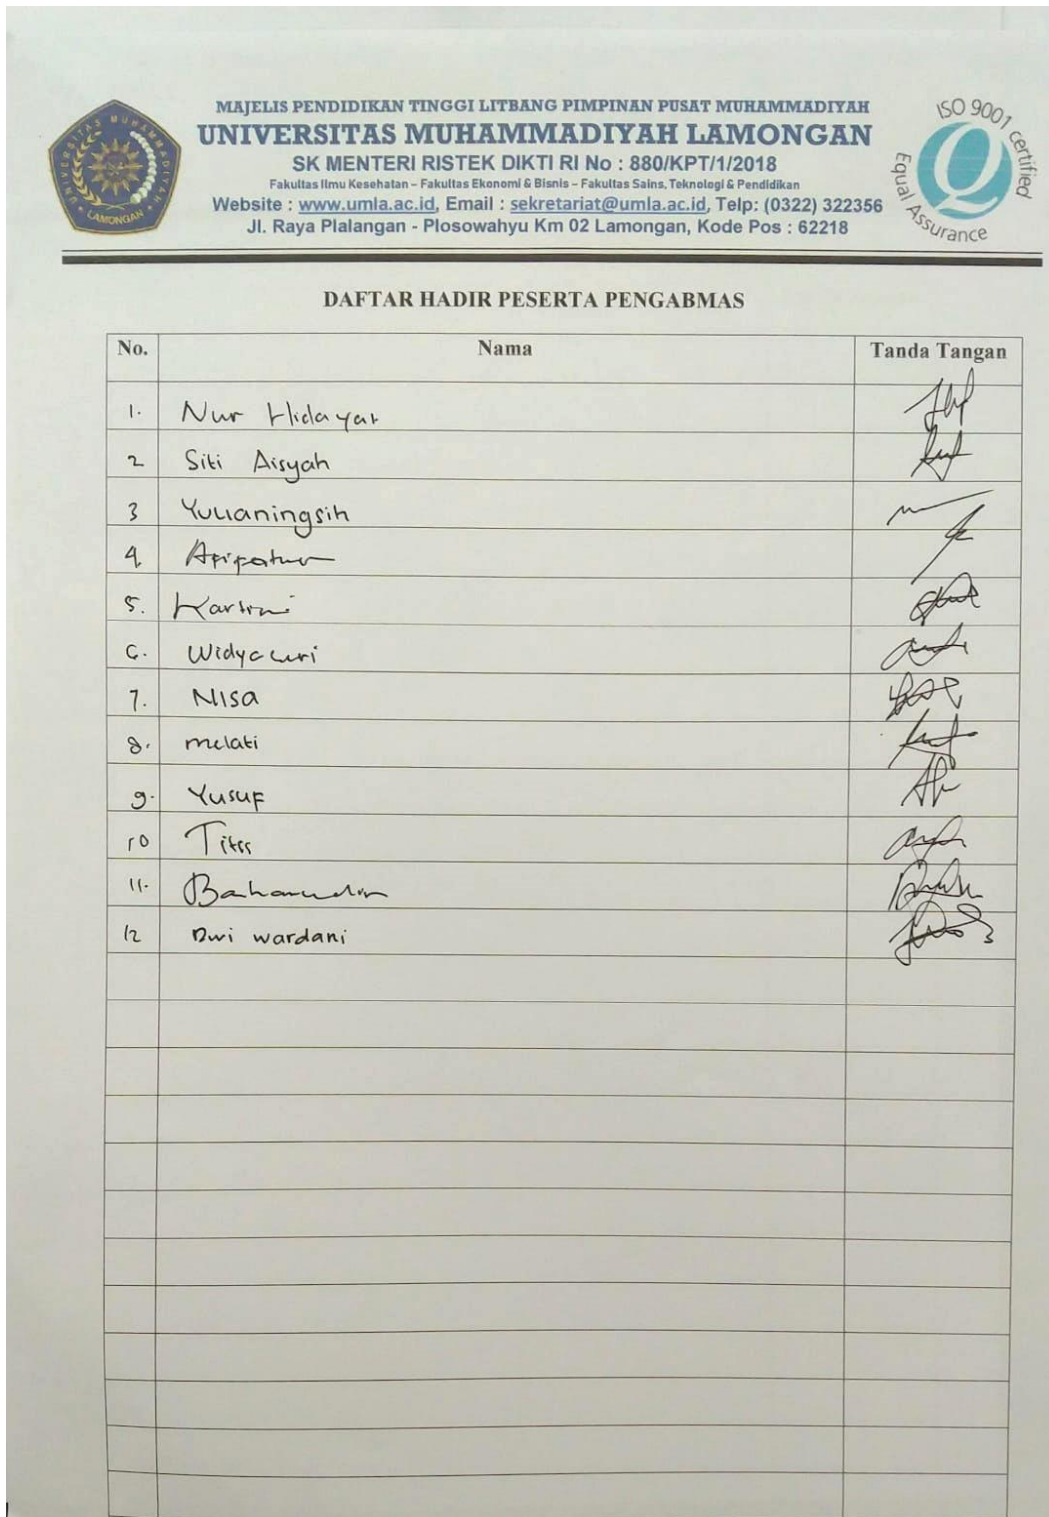 MAJELIS PENDIDIKAN TINGGI LITBANG PIMPINAN PUSAT MUHAMMADIYAH
UNIVERSITAS MUHAMMADIYAH LAMONGAN
SK MENTERI RISTEK DIKTI RI No : 880/KPT/1/2018
Fakultas Ilmu Kesehatan – Fakultas Ekonomi & Bisnis – Fakultas Sains, Teknologi & Pendidikan
Website : www.umla.ac.id, Email : sekretariat@umla.ac.id, Telp: (0322) 322356
Jl. Raya Plalangan - Plosowahyu Km 02 Lamongan, Kode Pos : 62218
UNIVERSITAS MUHAMMADIYAH
LAMONGAN
ISO 9001 certified
Equal Assurance
DAFTAR HADIR PESERTA PENGABMAS
No. Nama Tanda Tangan
1. Nur Hidayat
2 Siti Aisyah
3 Yulianingsih
4. Afifatur
5. Kartini
6. Widyawri
7. Nisa
8. melati
9. Yusuf
10
11. Baharudin
12 Dwi wardani